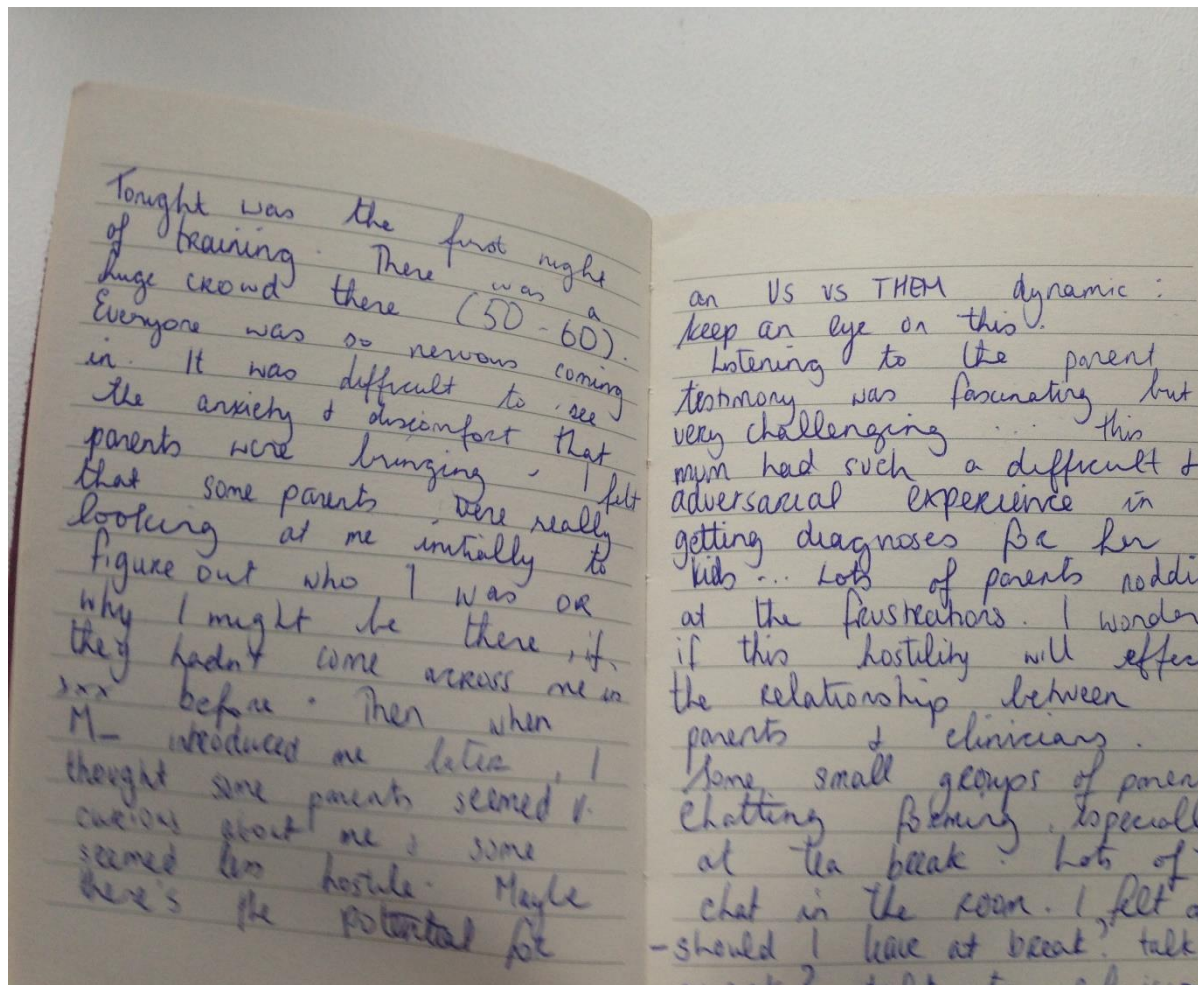 Tonight was the first night
of training. There was a
huge crowd there (50-60).
Everyone was so nervous coming
in. It was difficult to see
the anxiety & discomfort that
parents were bringing, I felt
that some parents were really
looking at me initially to
figure out who I was OR
why I might be there, if
they hadn't come across me in
xxx before. Then when
M_ introduced me later, I
thought some parents seemed v.
curious about me & some
seemed less hostile. Maybe
there's the potential for
an US vs THEM dynamic:
keep an eye on this.
Listening to the parent
testimony was fascinating but
very challenging ... this
mum had such a difficult &
adversarial experience in
getting diagnoses for her
kids ... Lots of parents noddi
at the frustrations. I wonder
if this hostility will effec
the relationship between
parents & clinicians.
Some small groups of paren
chatting forming, especiall
at tea break. Lots of
chat in the room. I felt
- should I leave at break? talk